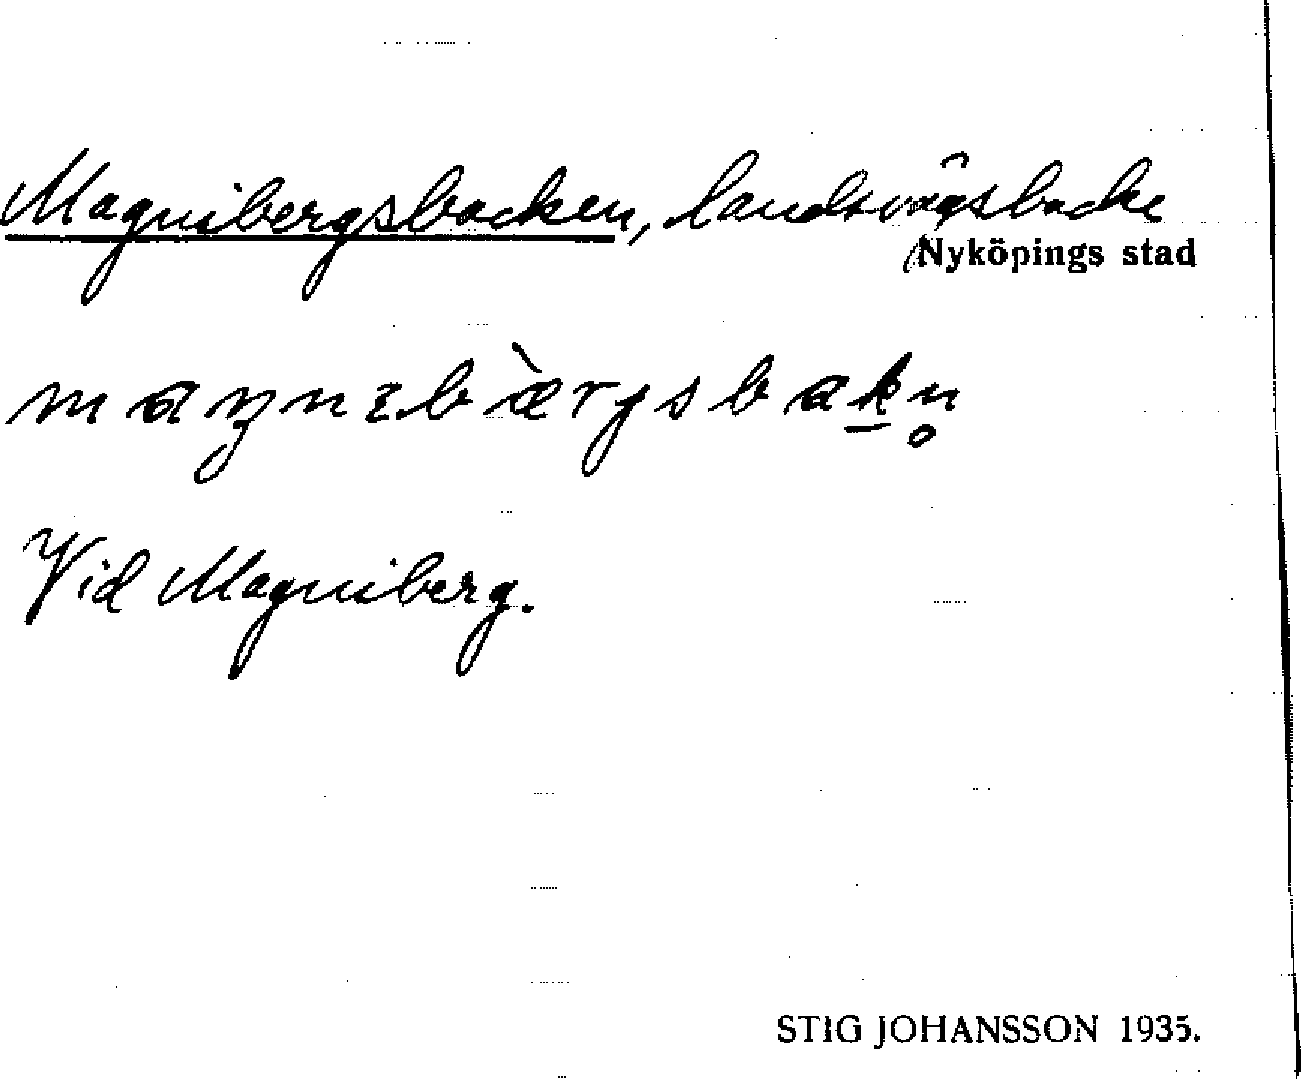 Magnibergsbacken, landsvägsbacke
Nyköpings stad
maŋnɛbæ̀rgsbak̲n̥
Vid Magniberg.
STIG JOHANSSON 1935.